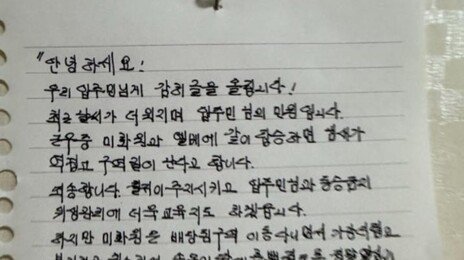 "안녕하세요!
우리 입주민님께 감히 글을 올립니다!
최고 날씨가 더워지며 입주민 님의 민원입니다.
근무중 미화원과 엘베에 같이 탑승하면 땀내가
역겹고 구역질이 난다고 합니다.
죄송합니다. 입주민님과 동승금지
위생관리에 더욱 교육지도 하겠습니다.
하지만 미화원은 배당된구역 이동하면서